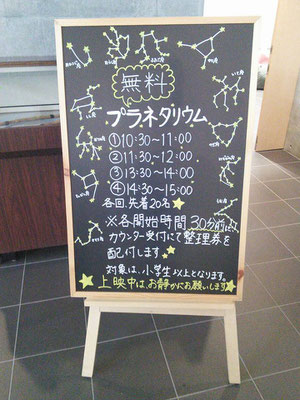 無料
プラネタリウム
①10:30~11:00
②11:30~12:00
③13:30~14:00
④14:30~15:00
各回、先着20名★
※各開始時間30分前より
カウンター受付にて整理券を
配付します
対象は、小学生以上となります。
上映中は、お静かにお願いします